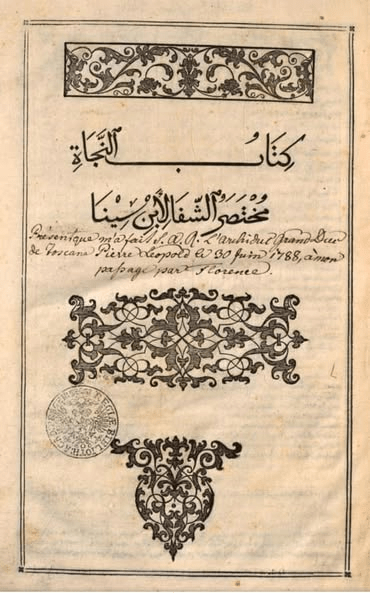 كتاب النجاة
مختصر الشفا لابن سينا
Présent que m'a fait S. A. R. L'archiduc Grand Duc
de Toscane Pierre Léopold le 30 Juin 1788, a mon
passage par Florence.